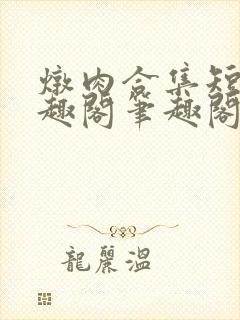 燉肉合集短
趣閣筆趣閣
龍麗溫